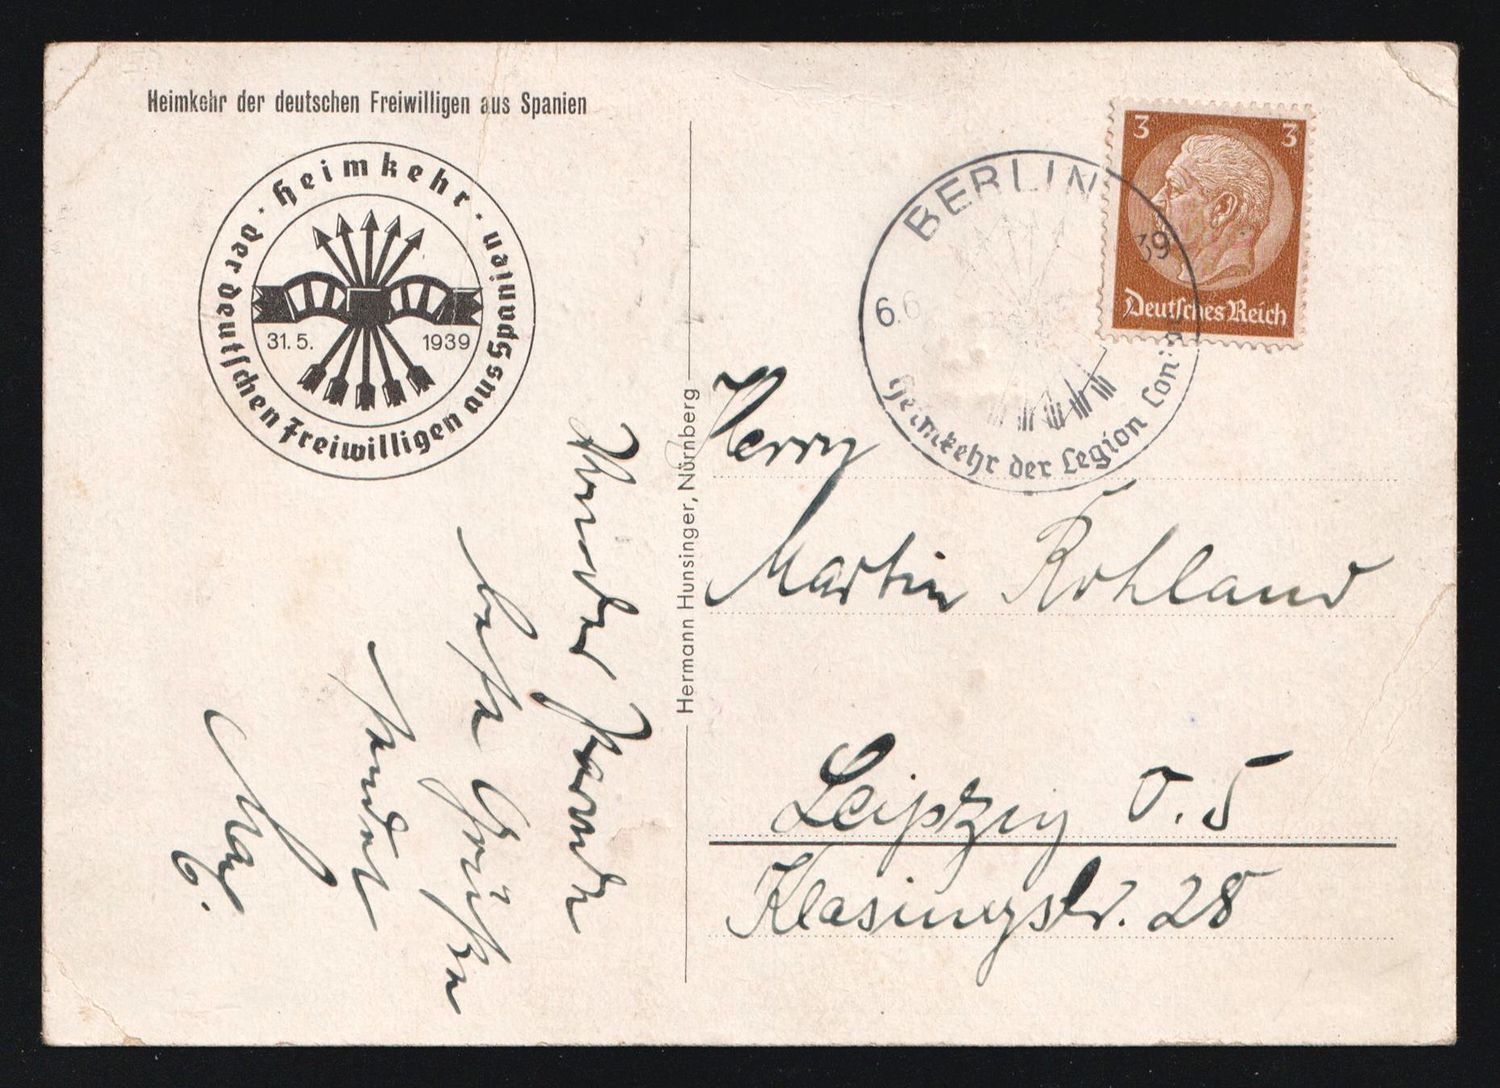 Heimkehr der deutschen Freiwilligen aus Spanien
· Heimkehr · der deutschen Freiwilligen aus Spanien
31. 5. 1939
beste Grüße
sendet
Hermann Hunsinger, Nürnberg
BERLIN
6.6 39
Heimkehr der Legion Con
3 3
Deutsches Reich
Herrn
Martin Rohland
Leipzig O. 5
Klasingstr. 28